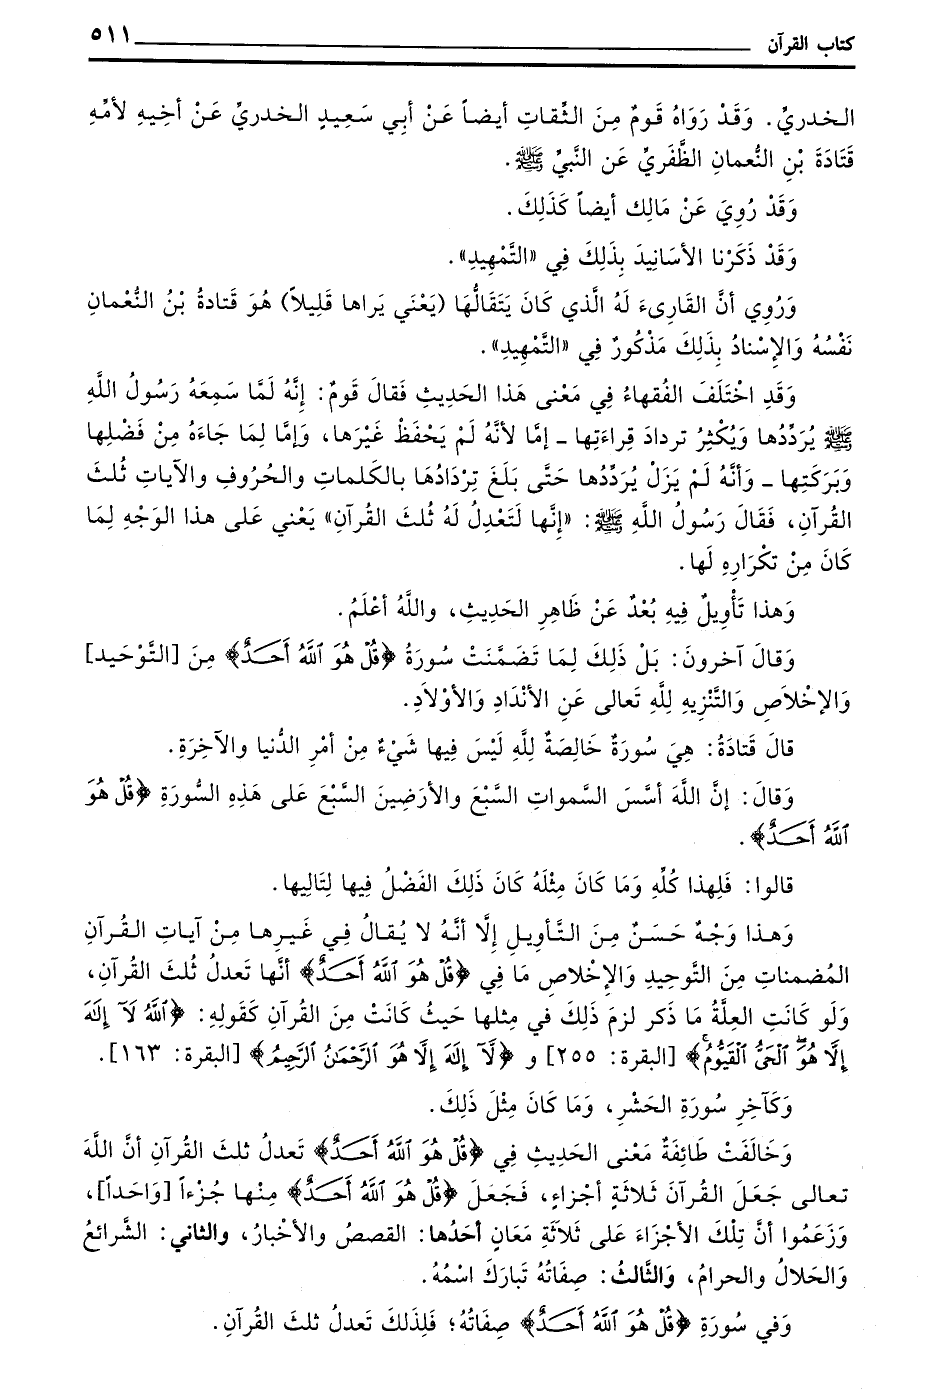 كتاب القرآن ٥١١
الخدريِّ. وَقَدْ رَوَاهُ قَومٌ مِنَ الثِّقاتِ أيضاً عَنْ أبِي سَعِيدٍ الخدريِّ عَنْ أخِيهِ لأمِّهِ
قَتَادَةَ بْنِ النُّعمانِ الظَّفَرِيِّ عَنِ النَّبِيِّ ﷺ.
وَقَدْ رُوِيَ عَنْ مَالِك أيضاً كَذَلِكَ.
وَقَدْ ذَكَرْنا الأسَانِيدَ بِذَلِكَ فِي «التَّمْهِيدِ».
وَرُوِي أنَّ القَارِىءَ لَهُ الَّذي كَانَ يَتَقَالُّهَا (يَعْنَي يَراها قَلِيلاً) هُوَ قَتادةُ بْنُ النُّعْمانِ
نَفْسُهُ وَالإسْنادُ بِذَلِكَ مَذْكُورٌ فِي «التَّمْهِيدِ».
وَقَدِ اخْتَلَفَ الفُقهاءُ فِي مَعْنى هَذا الحَدِيثِ فَقالَ قَومٌ: إنَّهُ لَمَّا سَمِعَهُ رَسُولُ اللَّهِ
ﷺ يُرَدِّدُها وَيُكْثِرُ تردادَ قِراءَتِها - إمَّا لأنَّهُ لَمْ يَحْفَظْ غَيْرَها، وَإمَّا لِمَا جَاءَهُ مِنْ فَضْلِها
وَبَرَكَتِها - وَأنَّهُ لَمْ يَزَلْ يُرَدِّدُها حَتَّى بَلَغَ تِرْدَادُهَا بالكَلماتِ والحُروفِ والآياتِ ثُلثَ
القُرآنِ، فَقَالَ رَسُولُ اللَّهِ ﷺ: «إنَّها لَتَعْدِلُ لَهُ ثُلثَ القُرآنِ» يَعْني عَلى هذا الوَجْهِ لِمَا
كَانَ مِنْ تكْرَارِهِ لَها.
وَهذا تَأْوِيلٌ فِيهِ بُعْدٌ عَنْ ظَاهِرِ الحَدِيثِ، واللَّهُ أعْلَمُ.
وَقالَ آخرونَ: بَلْ ذَلِكَ لِمَا تَضَمَّنَتْ سُورَةُ ﴿قُلْ هُوَ ٱللَّهُ أَحَدٌ﴾ مِنَ [التَّوْحَيد]
وَالإخْلاَصِ وَالتَّنْزِيهِ لِلَّهِ تَعالى عَنِ الأنْدَادِ وَالأوْلاَدِ.
قالَ قَتادَةُ: هِيَ سُورَةٌ خَالِصَةٌ لِلَّهِ لَيْسَ فِيها شَيْءٌ مِنْ أمْرِ الدُّنيا والآخِرَةِ.
وَقالَ: إنَّ اللَّهَ أسَّسَ السَّمواتِ السَّبْعَ والأرَضِينَ السَّبْعَ عَلى هَذِهِ السُّورَةِ ﴿قُلْ هُوَ
ٱللَّهُ أَحَدٌ﴾.
قالوا: فَلِهذا كُلِّهِ وَمَا كَانَ مِثْلَهُ كَانَ ذَلِكَ الفَضْلُ فِيها لِتَالِيها.
وَهـذا وَجْهٌ حَسَـنٌ مِـنَ التَّأويـلِ إلَّا أنَّـهُ لا يُـقـالُ فِـي غَـيـرِهـا مِـنْ آيـاتِ الـقُـرآنِ
المُضمناتِ مِنَ التَّوحِيدِ وَالإخْلاصِ مَا فِي ﴿قُلْ هُوَ ٱللَّهُ أَحَدٌ﴾ أنَّها تَعدلُ ثُلثَ القُرآنِ،
وَلَو كَانَتِ العِلَّةُ مَا ذَكر لزمَ ذَلِكَ في مِثلها حَيثُ كانَتْ مِنَ القُرآنِ كَقَولِهِ: ﴿ٱللَّهُ لَآ إِلَٰهَ
إِلَّا هُوَ ٱلْحَىُّ ٱلْقَيُّومُ﴾ [البقرة: ٢٥٥] و ﴿لَّآ إِلَٰهَ إِلَّا هُوَ ٱلرَّحْمَٰنُ ٱلرَّحِيمُ﴾ [البقرة: ١٦٣].
وَكَآخِرِ سُورَةِ الحَشْرِ، وَمَا كَانَ مِثْلَ ذَلِكَ.
وَخَالَفَتْ طَائِفَةٌ مَعْنى الحَدِيثِ فِي ﴿قُلْ هُوَ ٱللَّهُ أَحَدٌ﴾ تَعدلُ ثلثَ القُرآنِ أنَّ اللَّهَ
تـعـالى جَعَلَ القُرآنَ ثَلاثَةَ أجْزاءٍ، فَـجَـعَـلَ ﴿قُلْ هُوَ ٱللَّهُ أَحَدٌ﴾ مِنْـهـا جُزْءاً [وَاحَداً]،
وَزَعَمُوا أنَّ تِلْكَ الأجْزَاءَ عَلى ثَلاثَةِ مَعَانٍ أحَدُها: القصصُ والأخْبارُ، والثاني: الشَّرائعُ
وَالحَلالُ والحرامُ، وَالثَّالثُ: صِفَاتُهُ تَبارَكَ اسْمُهُ.
وَفي سُورَةِ ﴿قُلْ هُوَ ٱللَّهُ أَحَدٌ﴾ صِفَاتُهُ؛ فَلِذَلكَ تَعدلُ ثلثَ القُرآنِ.